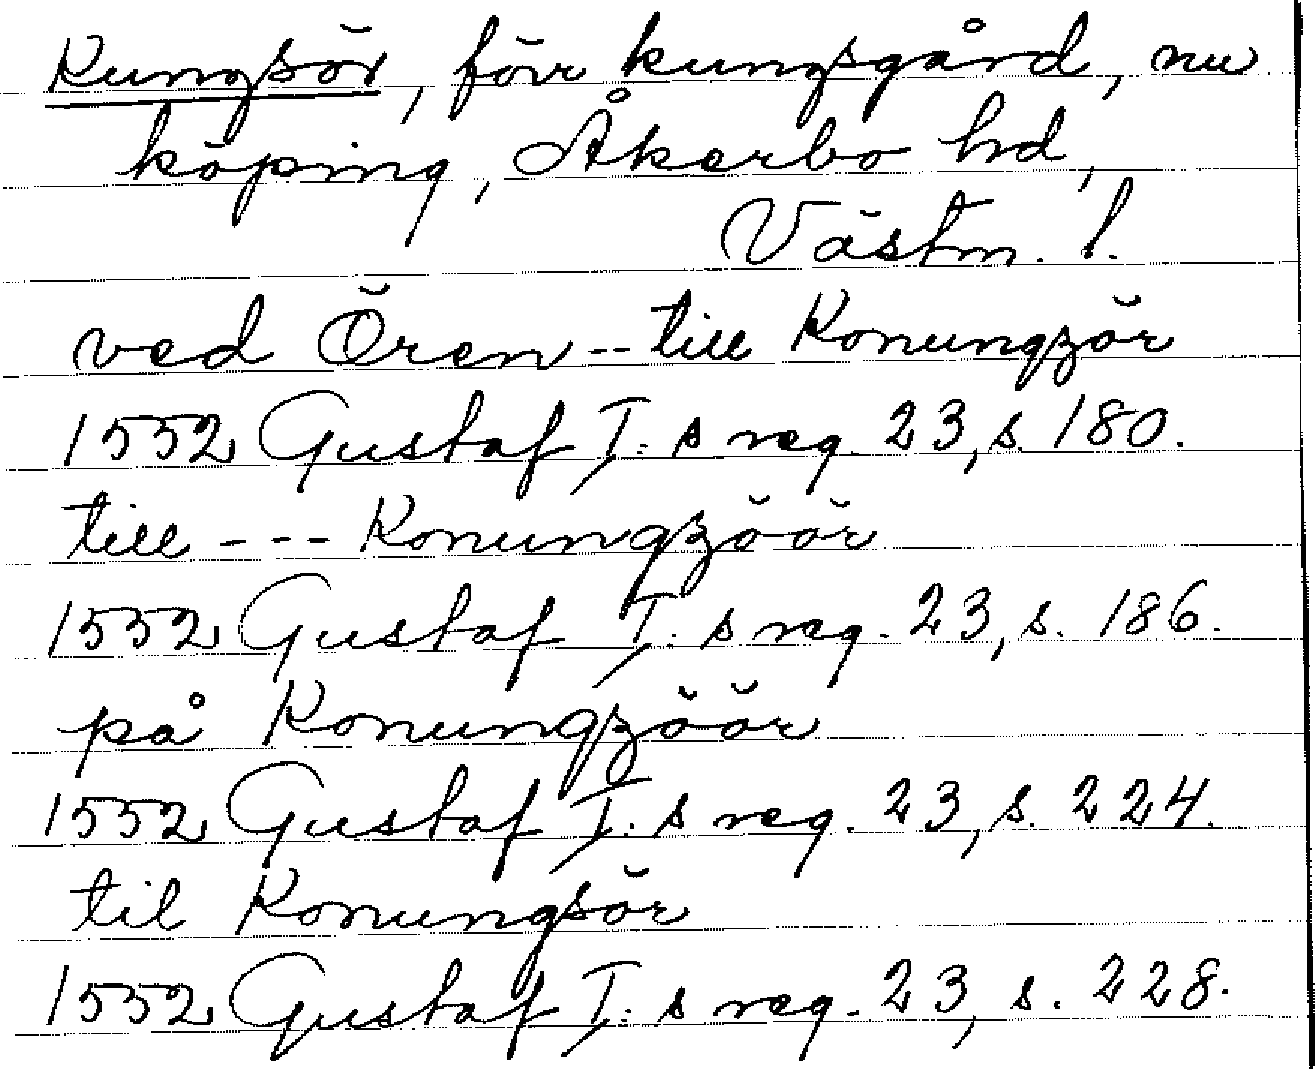 Kungsör, förr kungsgård, nu
köping, Åkerbo hd,
Västm. l.
ved Ören -- till Konungzör
1552 Gustaf I:s reg. 23, s. 180.
till --- Konungzöör
1552 Gustaf I:s reg. 23, s. 186.
på Konungzöör
1552 Gustaf I:s reg. 23, s. 224.
til Konungsör
1552 Gustaf I:s reg. 23, s. 228.